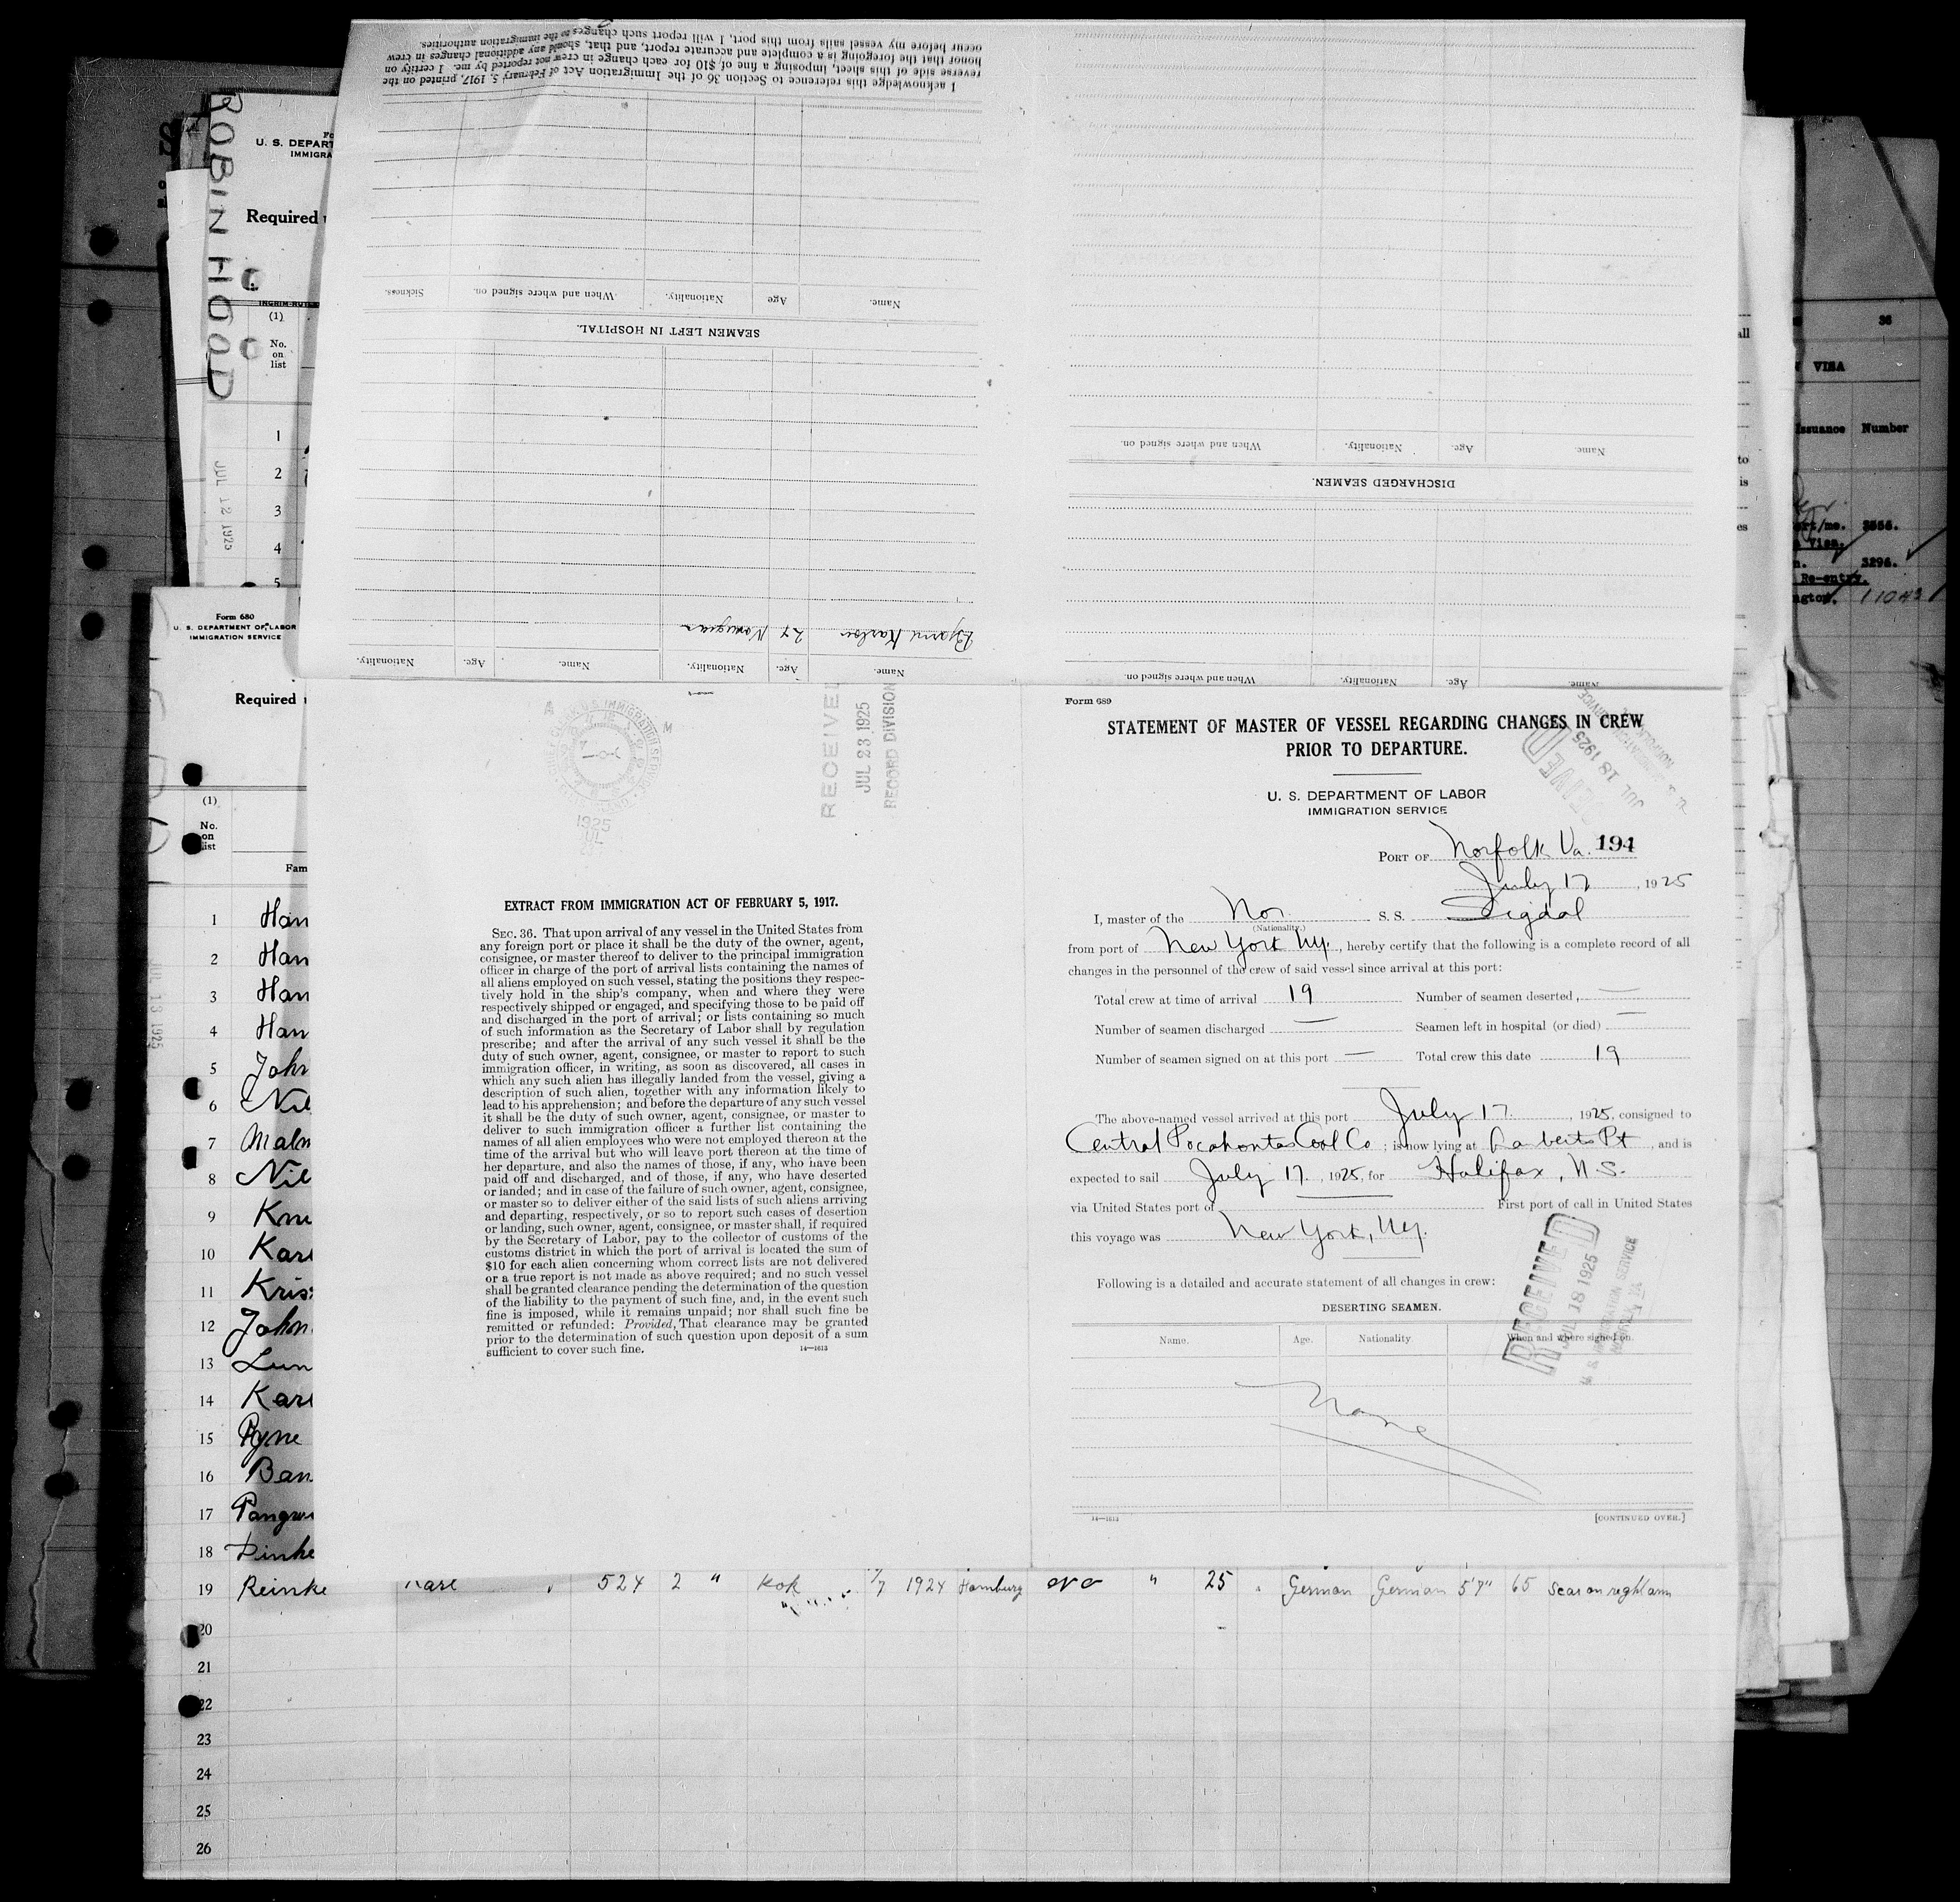 ROBIN HOOD
U. S. DEPART
IMMIGRA
Required
(1)
No.
on
list
1
2
3
4
5
JUL 12 1925
36
VISA
Issuance Number
3296.
Re-entry.
I acknowledge this reference to Section 36 of the Immigration Act of February 5, 1917, printed on the
reverse side of this sheet, imposing a fine of $10 for each change in crew not reported by me. I certify on
honor that the foregoing is a complete and accurate report, and that, should any additional changes in crew
occur before my vessel sails from this port, I will report such changes to the immigration authorities.
Name. Age Nationality. When and where signed on. Sickness.
SEAMEN LEFT IN HOSPITAL.
Name. Age. Nationality. When and where signed on.
DISCHARGED SEAMEN.
Name. Age. Nationality. Name. Age. Nationality.
Name. Age. Nationality. When and where signed on.
Form 680
U. S. DEPARTMENT OF LABOR
IMMIGRATION SERVICE
Required
(1)
No.
on
list
Fam
JUL 13 1925
1 Han
2 Han
3 Han
4 Han
5 John
6 Nil
7 Malm
8 Nil
9 Knu
10 Karl
11 Kris
12 Johan
13 Lun
14 Karl
15 Ryne
16 Ban
17 Pangru
18 Dinke
19 Reinke Karl 524 2 " Kok 7 1924 Hamburg " 25 German German 5'7" 65 Scar on right arm
20
21
22
23
24
25
26
RECEIVED
JUL 23 1925
RECORD DIVISION
1925
EXTRACT FROM IMMIGRATION ACT OF FEBRUARY 5, 1917.
SEC. 36. That upon arrival of any vessel in the United States from
any foreign port or place it shall be the duty of the owner, agent,
consignee, or master thereof to deliver to the principal immigration
officer in charge of the port of arrival lists containing the names of
all aliens employed on such vessel, stating the positions they respec-
tively hold in the ship's company, when and where they were
respectively shipped or engaged, and specifying those to be paid off
and discharged in the port of arrival; or lists containing so much
of such information as the Secretary of Labor shall by regulation
prescribe; and after the arrival of any such vessel it shall be the
duty of such owner, agent, consignee, or master to report to such
immigration officer, in writing, as soon as discovered, all cases in
which any such alien has illegally landed from the vessel, giving a
description of such alien, together with any information likely to
lead to his apprehension; and before the departure of any such vessel
it shall be the duty of such owner, agent, consignee, or master to
deliver to such immigration officer a further list containing the
names of all alien employees who were not employed thereon at the
time of the arrival but who will leave port thereon at the time of
her departure, and also the names of those, if any, who have been
paid off and discharged, and of those, if any, who have deserted
or landed; and in case of the failure of such owner, agent, consignee,
or master so to deliver either of the said lists of such aliens arriving
and departing, respectively, or so to report such cases of desertion
or landing, such owner, agent, consignee, or master shall, if required
by the Secretary of Labor, pay to the collector of customs of the
customs district in which the port of arrival is located the sum of
$10 for each alien concerning whom correct lists are not delivered
or a true report is not made as above required; and no such vessel
shall be granted clearance pending the determination of the question
of the liability to the payment of such fine, and, in the event such
fine is imposed, while it remains unpaid; nor shall such fine be
remitted or refunded: Provided, That clearance may be granted
prior to the determination of such question upon deposit of a sum
sufficient to cover such fine. 14—1613
Form 689
STATEMENT OF MASTER OF VESSEL REGARDING CHANGES IN CREW
PRIOR TO DEPARTURE.
U. S. DEPARTMENT OF LABOR
IMMIGRATION SERVICE
RECEIVED
JUL 18 1925
PORT OF Norfolk Va. 194
July 17, 1925
I, master of the Nor. S. S. Sigdal
(Nationality.)
from port of New York Ny., hereby certify that the following is a complete record of all
changes in the personnel of the crew of said vessel since arrival at this port:
Total crew at time of arrival 19 Number of seamen deserted, —
Number of seamen discharged — Seamen left in hospital (or died) —
Number of seamen signed on at this port — Total crew this date 19
The above-named vessel arrived at this port July 17, 1925, consigned to
Central Pocahontas Coal Co; is now lying at Lamberts Pt, and is
expected to sail July 17, 1925, for Halifax, N.S.
via United States port of First port of call in United States
this voyage was New York, Ny.
Following is a detailed and accurate statement of all changes in crew:
DESERTING SEAMEN.
Name. Age. Nationality When and where signed on.
None
RECEIVED
JUL 18 1925
U. S. IMMIGRATION SERVICE
NORFOLK VA
14—1613 [CONTINUED OVER.]